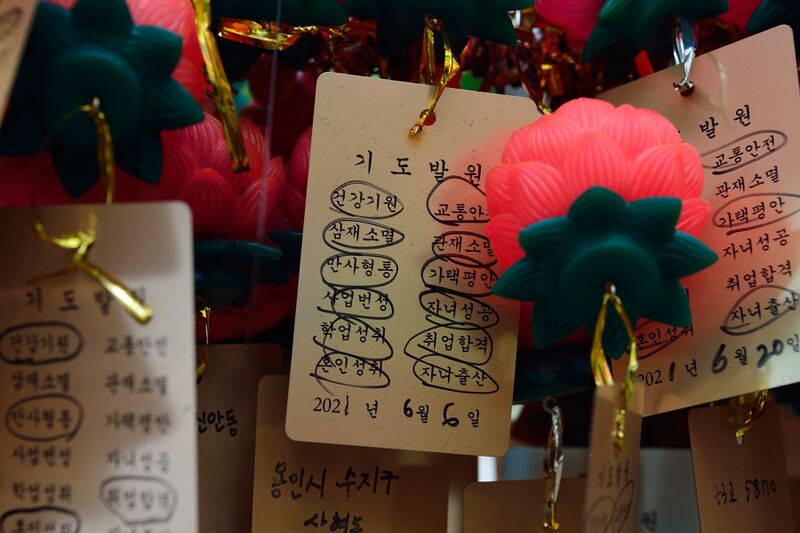 기도발원
건강기원 교통안전
삼재소멸 관재소멸
만사형통 가택평안
사업번성 자녀성공
학업성취 취업합격
혼인성취
기도발원
건강기원 교통안
삼재소멸 관재소멸
만사형통 가택평안
사업번성 자녀성공
학업성취 취업합격
혼인성취 자녀출산
2021년 6월 6일
발원
교통안전
관재소멸
가택평안
자녀성공
취업합격
혼인성취 자녀출산
2021년 6월 20일
신안동
용인시 수지구
5870